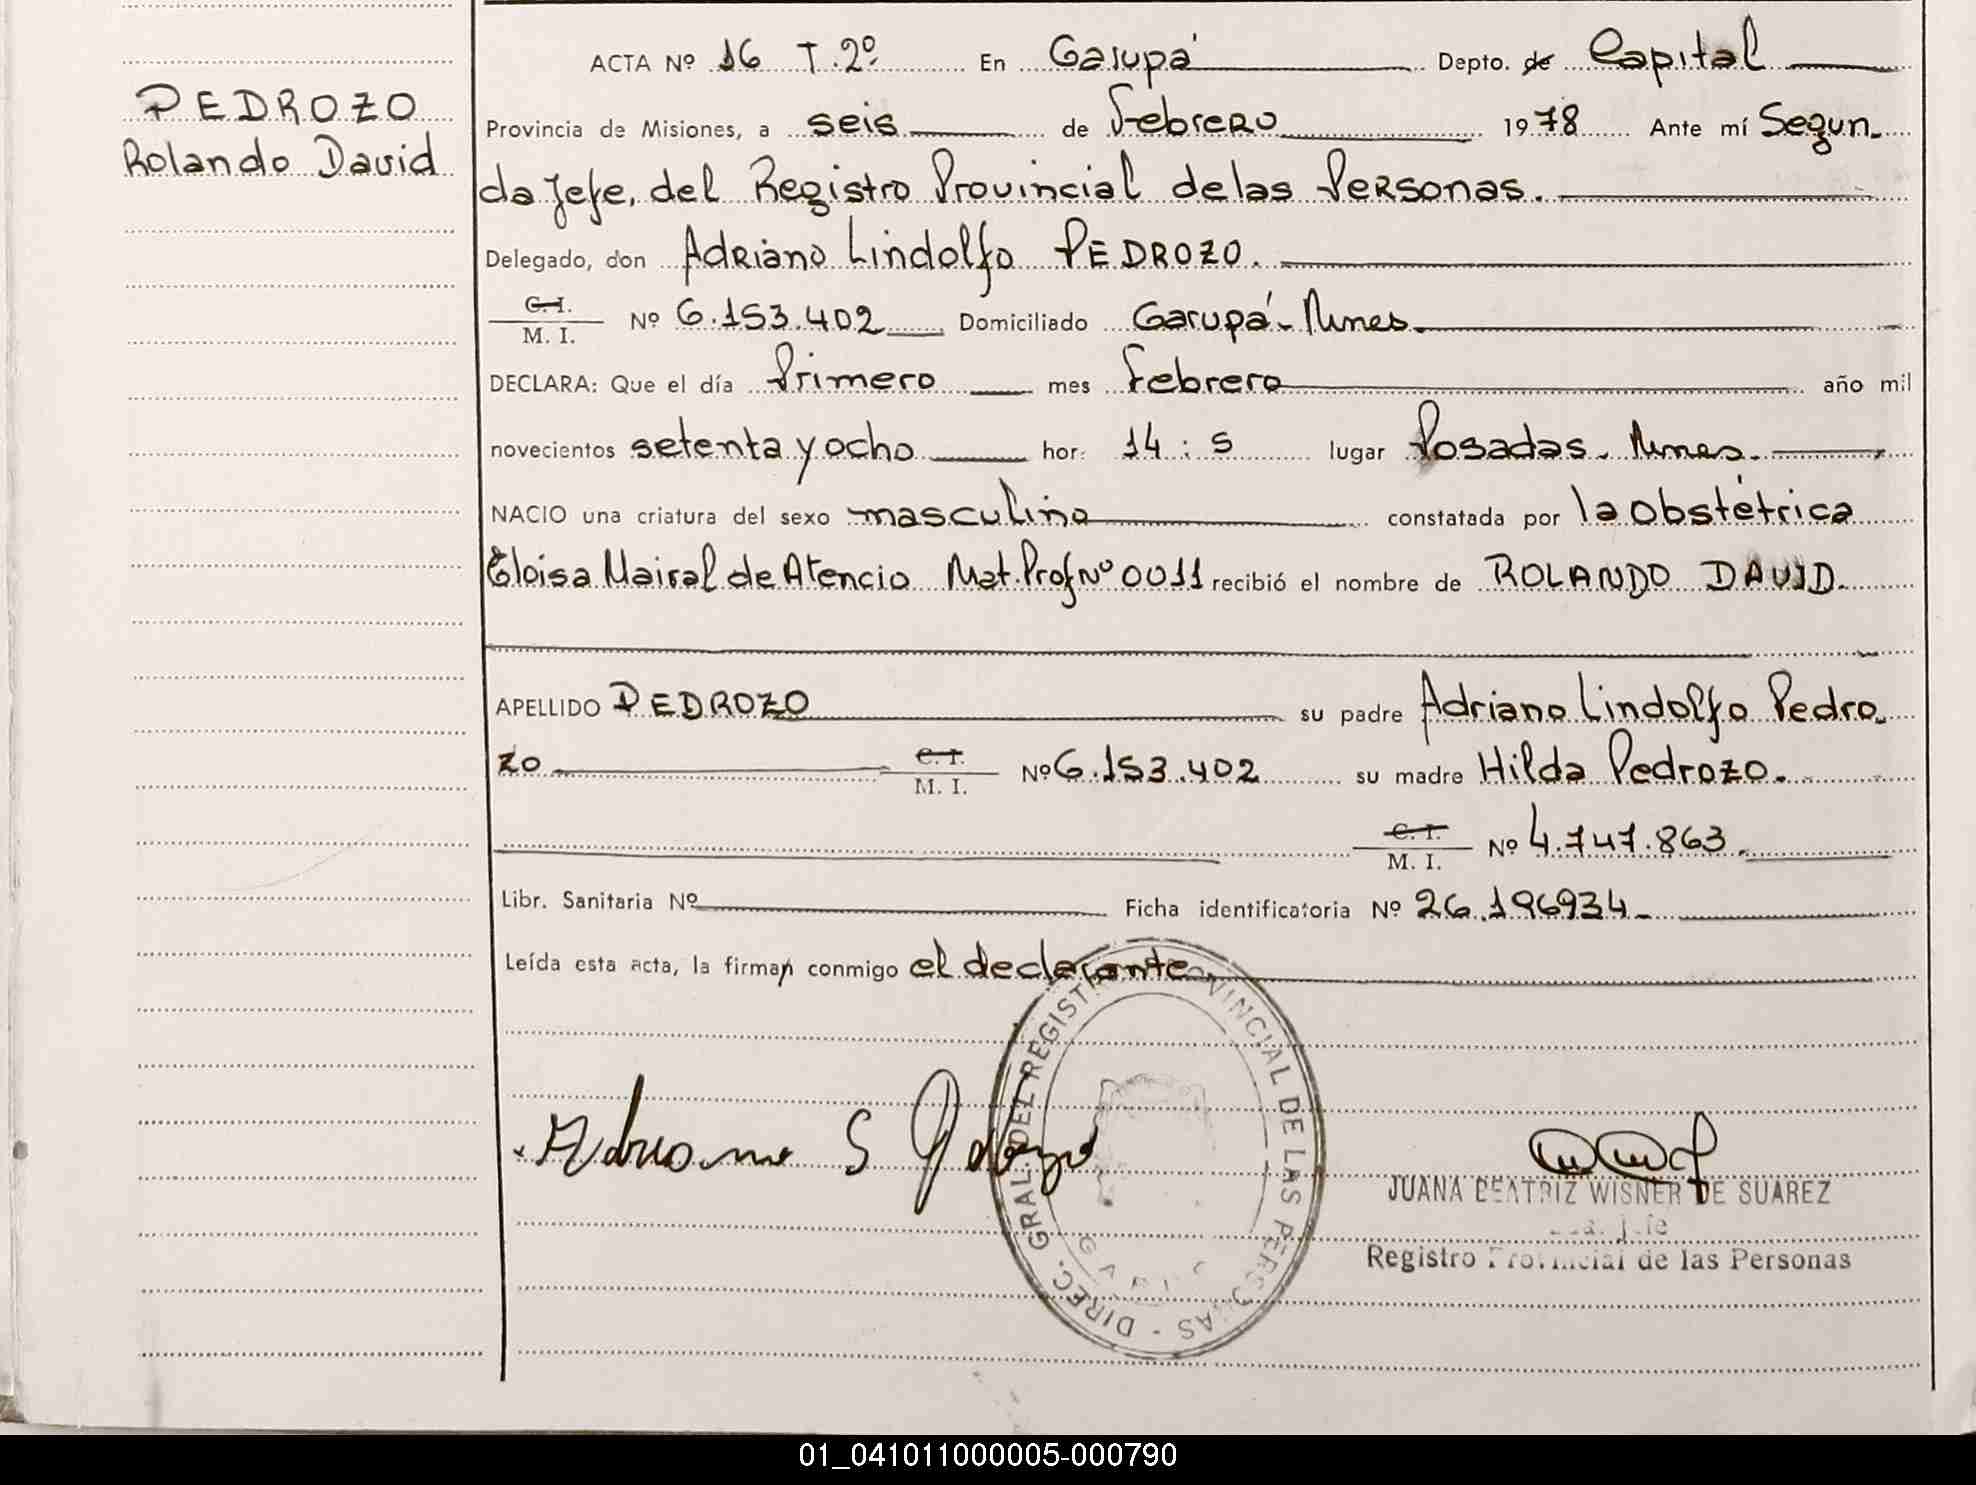 ACTA Nº 16 T. 2º. En Garupá Depto. de Capital
PEDROZO
Rolando David
Provincia de Misiones, a seis de Febrero 1978 Ante mí Segun-
da Jefe, del Registro Provincial de las Personas.
Delegado, don Adriano Lindolfo PEDROZO.
C. I.
M. I. Nº 6.153.402 Domiciliado Garupá- Mnes.
DECLARA: Que el día Primero mes Febrero año mil
novecientos setenta y ocho hor: 14 : 5 lugar Posadas- Mnes.
NACIO una criatura del sexo masculino constatada por la Obstétrica
Eloisa Mairal de Atencio Mat. Prof Nº 0011 recibió el nombre de ROLANDO DAVID.
APELLIDO PEDROZO su padre Adriano Lindolfo Pedro-
zo C. I. M. I. Nº 6.153.402 su madre Hilda Pedrozo.
C. I. M. I. Nº 4.747.863.
Libr. Sanitaria Nº Ficha identificatoria Nº 26.196934-
Leída esta acta, la firman conmigo el declarante
DIREC. GRAL. DEL REGISTRO PROVINCIAL DE LAS PERSONAS -
JUANA BEATRIZ WISNER DE SUAREZ
Jefe
Registro Provincial de las Personas
01_041011000005-000790